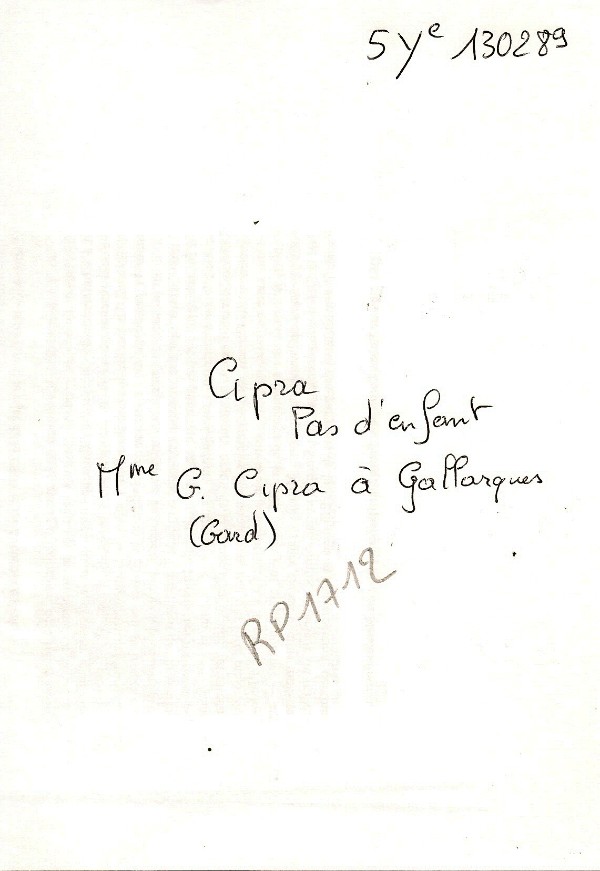 5 Yᵉ 130289
Cipra
Pas d'enfant
Mme G. Cipra à Gallargues
(Gard)
RP1712